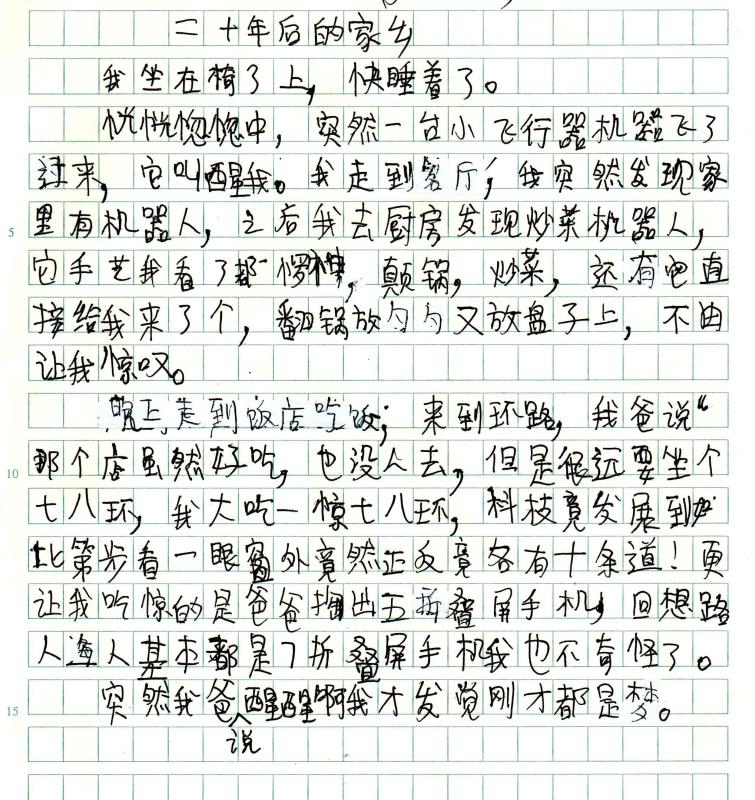 二十年后的家乡
我坐在椅了上，快睡着了。
恍恍惚惚中，突然一台小飞行器机器飞了
过来，它叫醒我。我走到客厅，我突然发现家
里有机器人，之后我去厨房发现炒菜机器人，
它手艺我看了都愣神，颠锅，炒菜，还有它直
接给我来了个，翻锅放勺勺又放盘子上，不由
让我惊叹。
晚上走到饭店吃饭，来到环路，我爸说“
那个店虽然好吃，也没人去，但是很远要坐个
七八环，我大吃一惊七八环，科技竟发展到如
此第步看一眼窗外竟然正反竟各有十条道！更
让我吃惊的是爸爸掏出五折叠屏手机，回想路
人渔人基本都是7折叠屏手机我也不奇怪了。
突然我爸说醒醒啊我才发觉刚才都是梦。